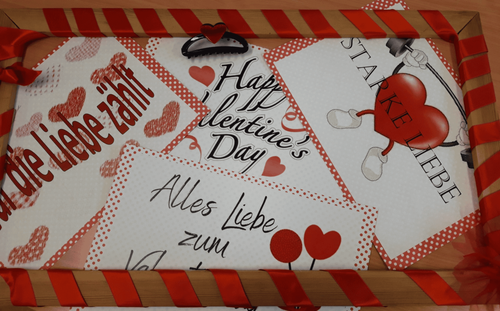 die Liebe zählt
Happy
Valentine's
Day
STARKE LIEBE
Alles Liebe
zum